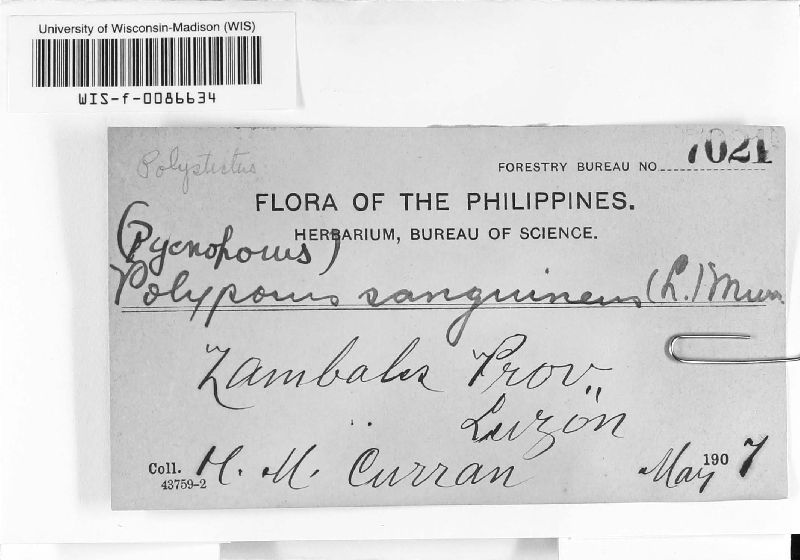 University of Wisconsin-Madison (WIS)
WIS-f-0086634
Polystictus
FORESTRY BUREAU NO. 7021
FLORA OF THE PHILIPPINES.
HERBARIUM, BUREAU OF SCIENCE.
(Pycnoporus)
Polyporus sanguineus (L.) Murr
Zambales Prov.,
Luzon
Coll. H. M. Curran May 1907
43759-2